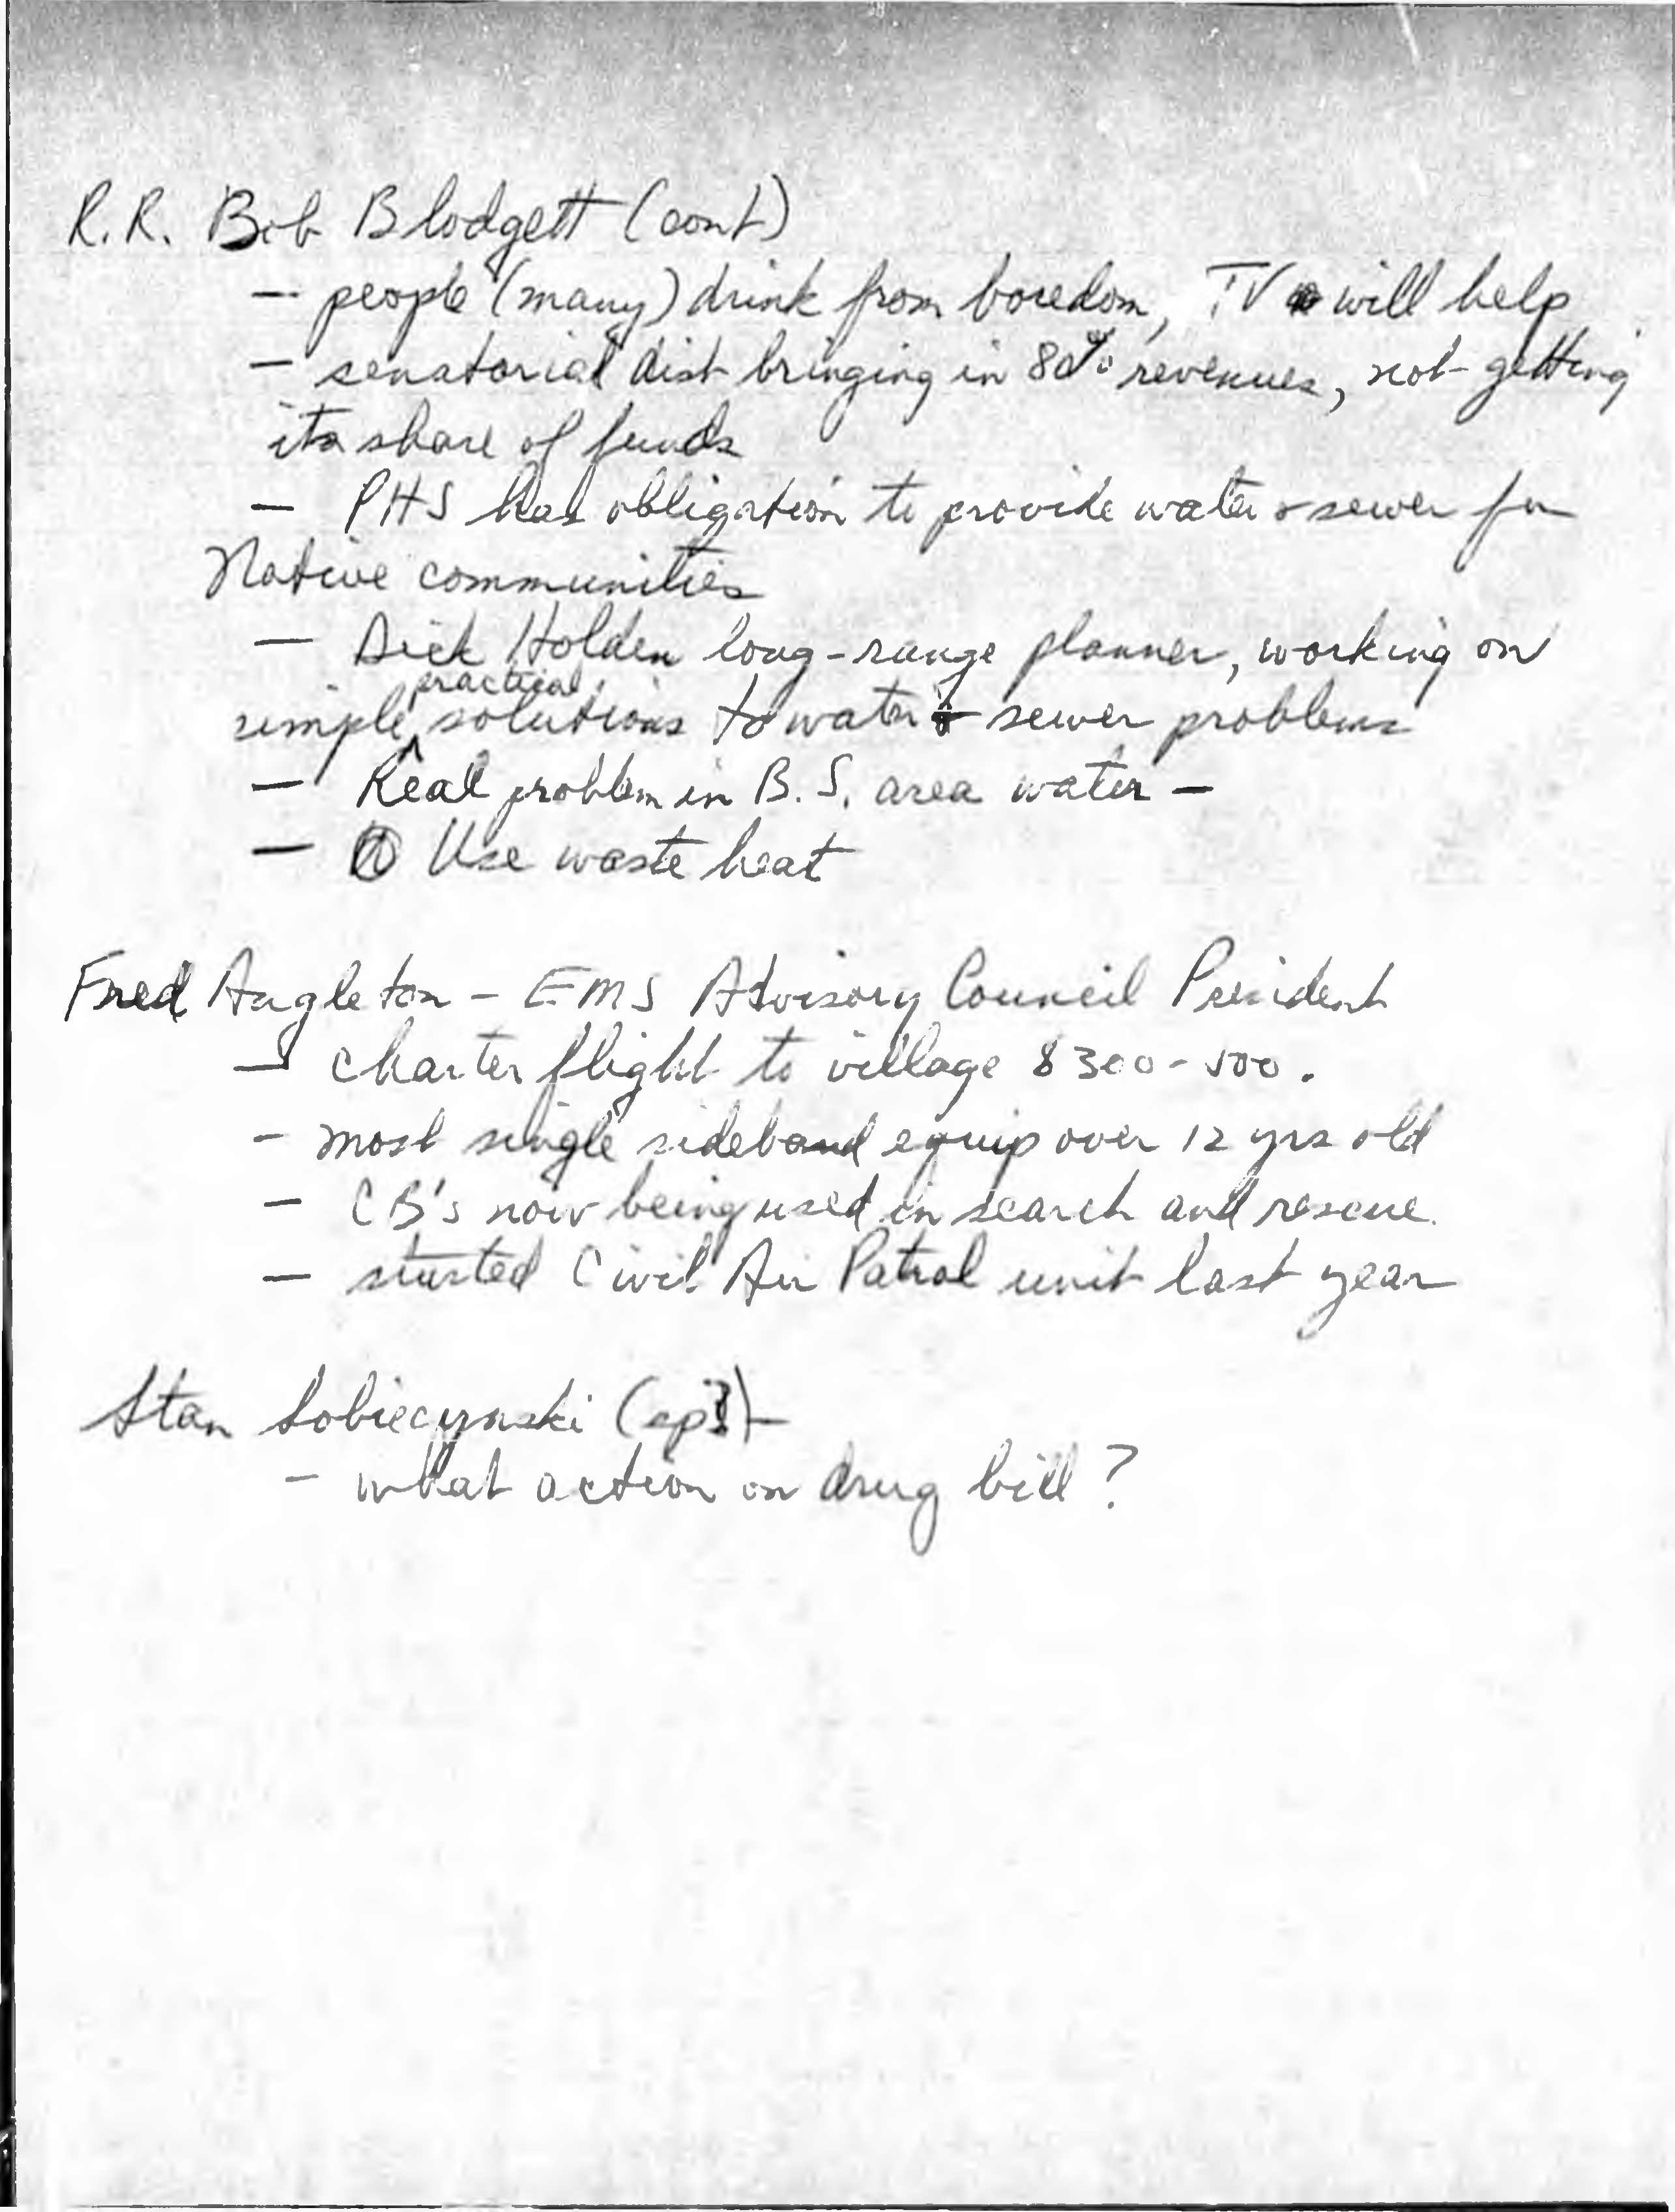 R.R. Bob Blodgett (cont)
— people (many) drink from boredom, TV will help
— senatorial dist bringing in 80% revenues, not getting
its share of funds
— PHS has obligation to provide water & sewer for
Native communities
— Dick Holden long-range planner, working on
practical
simple ^ solutions to water & sewer problems
— Real problem in B.S. area water —
— Use waste heat
Fred Angleton - EMS Advisory Council President
— charter flight to village $300-500.
- most single sideband equip over 12 yrs old
- CB's now being used in search and rescue.
— started Civil Air Patrol unit last year
Stan Sobieczynski (sp?) -
- what action on drug bill?